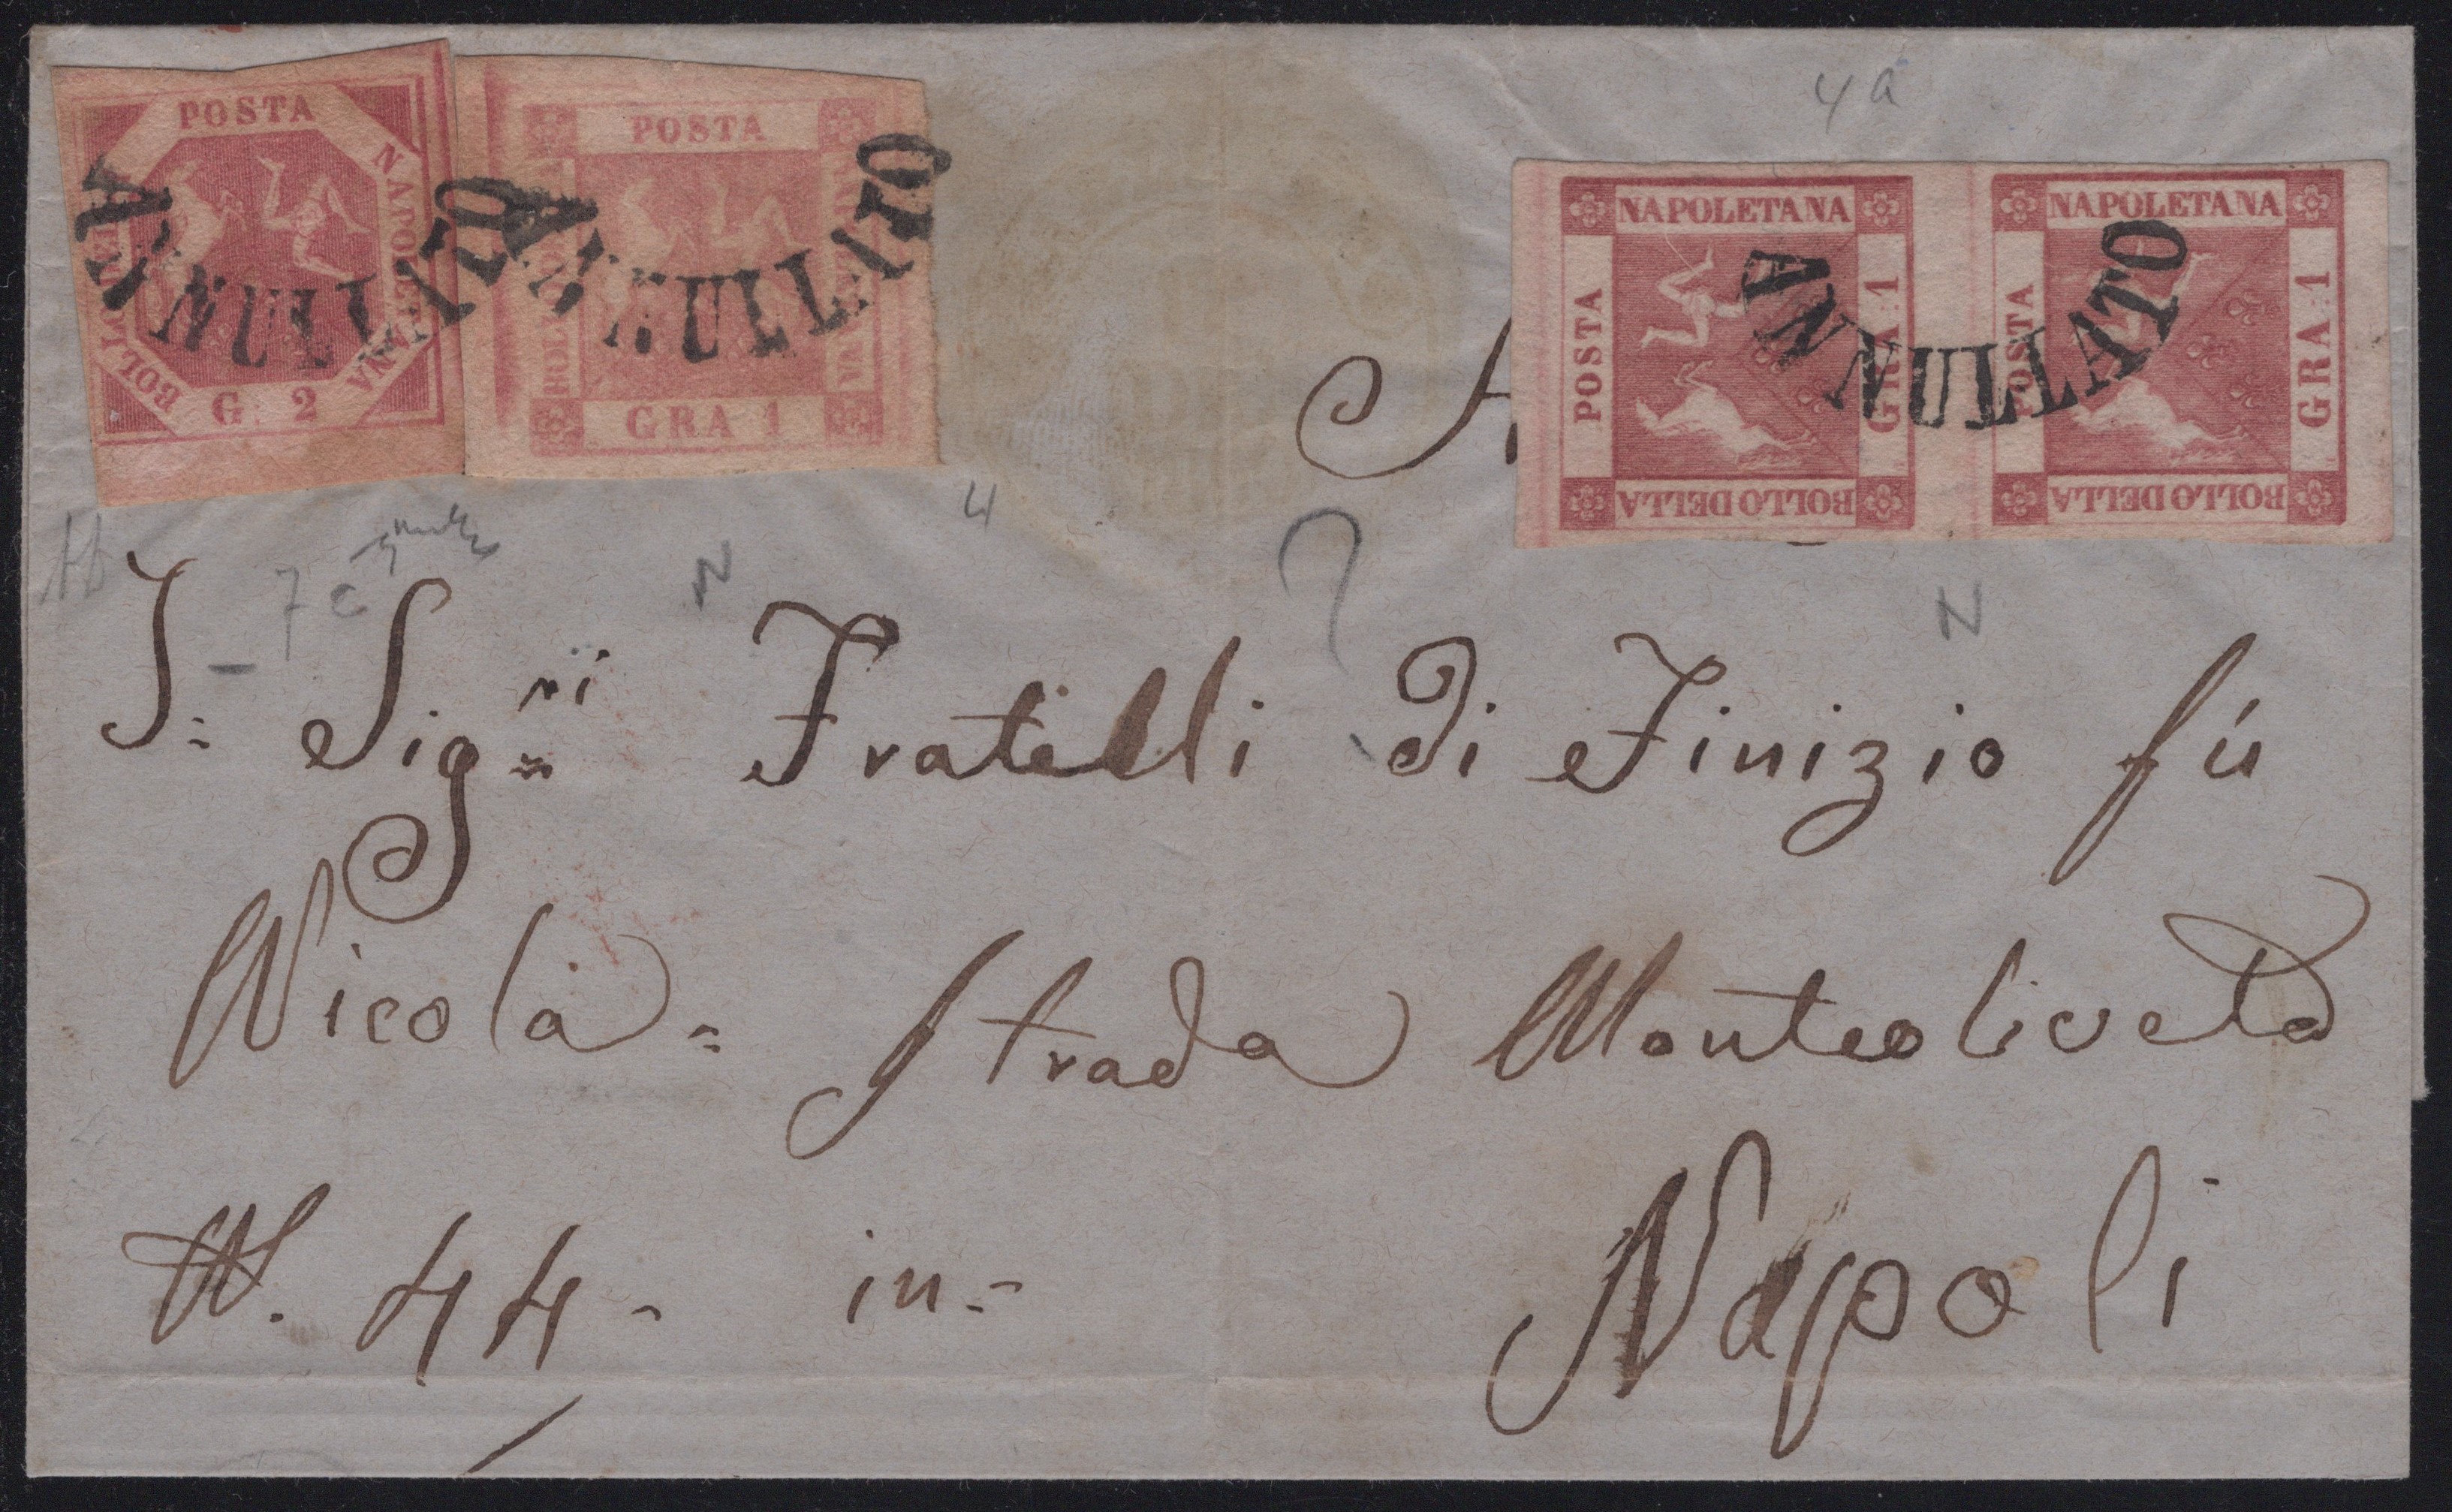 POSTA
NAPOLETANA
BOLLO DELLA
G. 2
ANNULLATO
POSTA
GRA 1
ANNULLATO
4 a
NAPOLETANA
POSTA
GRA 1
BOLLO DELLA
NAPOLETANA
POSTA
GRA 1
BOLLO DELLA
ANNULLATO
A
4
7 c
N
?
N
I- Sigri Fratelli Di Finizio fú
Nicola = Strada Monteoliveto
N. 44 - in =
Napoli